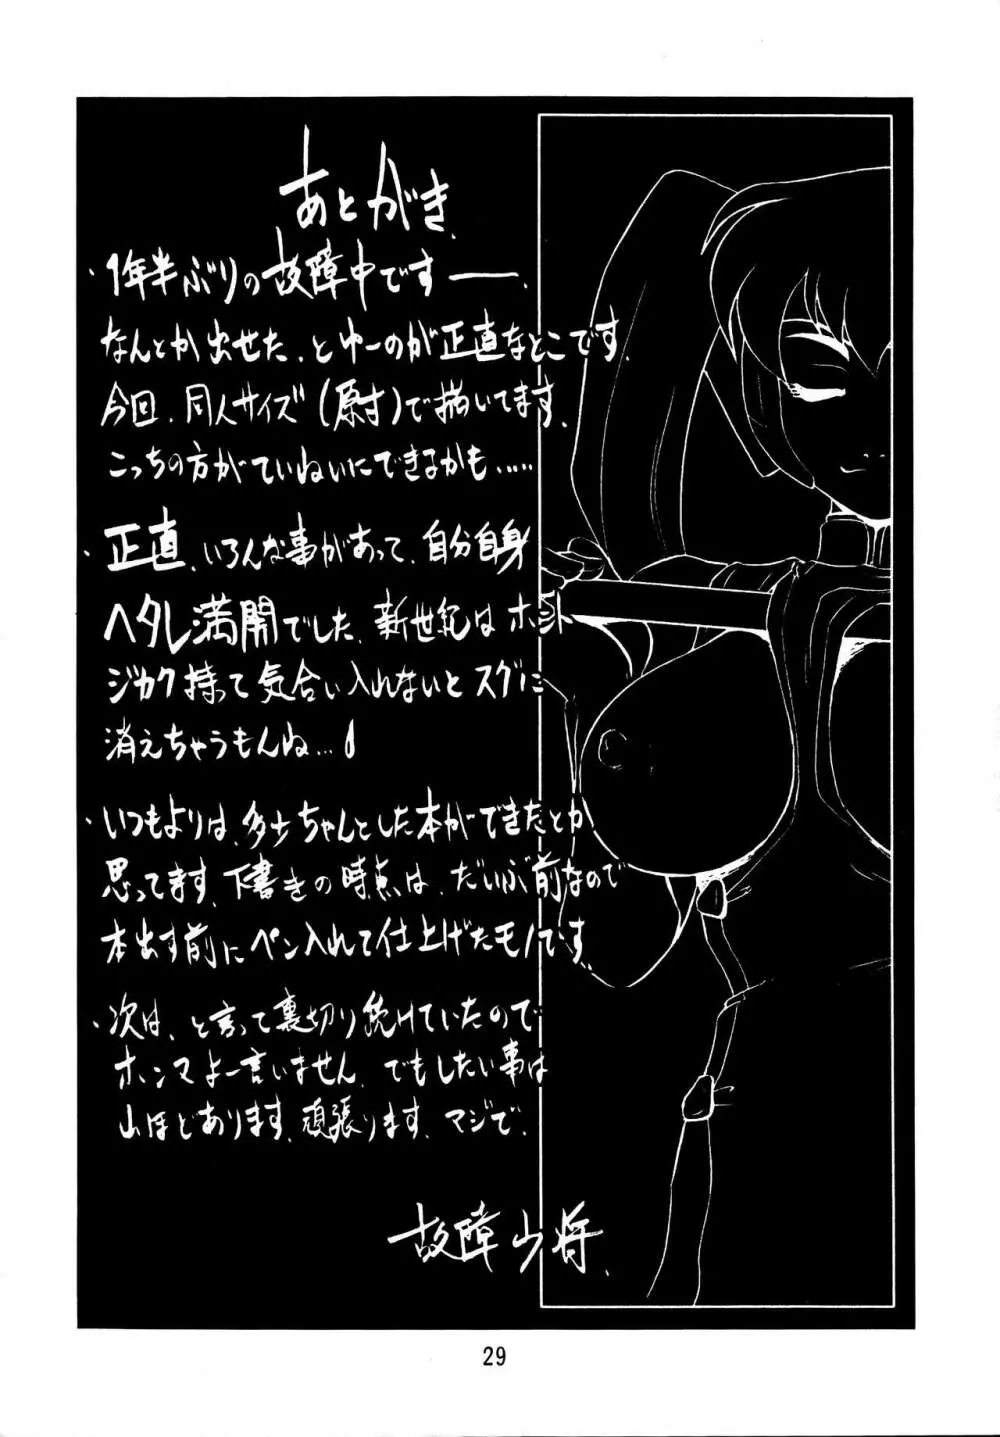 あとがき.
・1年半ぶりの故障中です——.
なんとか出せた、とゆーのが正直なとこです.
今回、同人サイズ(原寸)で描いてます.
こっちの方がていねいにできるかも……
・正直、いろんな事があって、自分自身
ヘタレ満開でした、新世紀はホント
ジカク持って気合い入れないとスグに
消えちゃうもんね…
・いつもよりは、多少ちゃんとした本ができたとか
思ってます、下書きの時点は、だいぶ前なので
本出す前にペン入れて仕上げたモノです.
・次は、と言って裏切り続けていたので
ホンマよー言いません、でもしたい事は
山ほどあります、頑張ります、マジで.
故障少将.
29